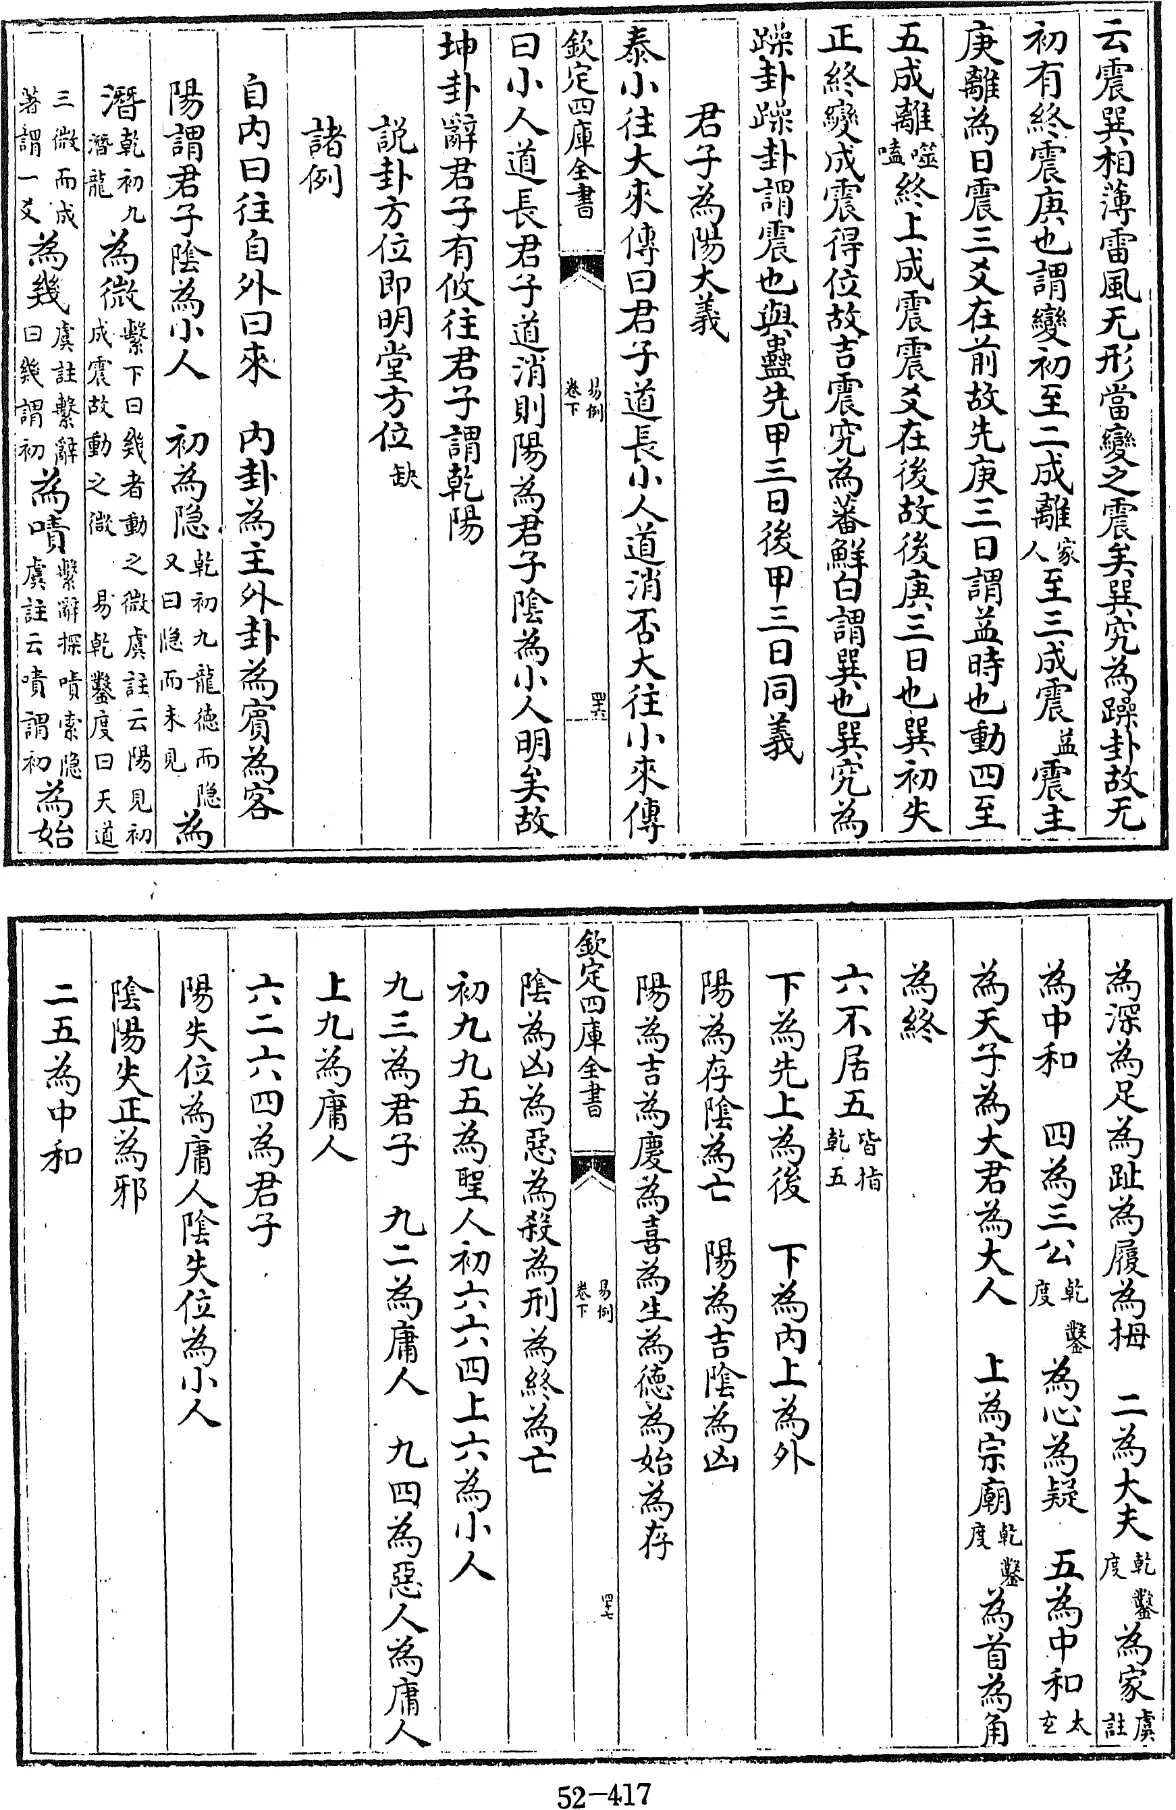 云震巽相薄雷風无形當變之震矣巽究為躁卦故无
初有終震庚也謂變初至二成離家人至三成震益震主
庚離為日震三爻在前故先庚三日謂益時也動四至
五成離噬嗑終上成震震爻在後故後庚三日也巽初失
正終變成震得位故吉震究為蕃鮮白謂巽也巽究為
躁卦躁卦謂震也與蠱先甲三日後甲三日同義
君子為陽大義
泰小往大來傳曰君子道長小人道消否大往小來傳
欽定四庫全書
易例
卷下
四六
曰小人道長君子道消則陽為君子陰為小人明矣故
坤卦辭君子有攸往君子謂乾陽
説卦方位即明堂方位缺
諸例
自内曰往自外曰來　内卦為主外卦為賓為客
陽謂君子陰為小人　初為隐乾初九龍德而隐又曰隐而未見為
潛乾初九潛龍為微繫下曰幾者動之微虞註云陽見初成震故動之微　易乾鑿度曰天道
三微而成著謂一爻為幾虞註繫辭曰幾謂初為嘖繫辭探嘖索隐虞註云嘖謂初為始
為深為足為趾為履為拇　二為大夫乾鑿度為家虞註
為中和　四為三公乾鑿度為心為疑　五為中和太玄
為天子為大君為大人　上為宗廟乾鑿度為首為角
為終
六不居五皆指乾五
下為先上為後　下為内上為外
陽為存陰為亡　陽為吉陰為凶
陽為吉為慶為喜為生為德為始為存
欽定四庫全書
易例
卷下
四七
陰為凶為惡為殺為刑為終為亡
初九九五為聖人初六六四上六為小人
九三為君子　九二為庸人　九四為惡人為庸人
上九為庸人
六二六四為君子
陽失位為庸人陰失位為小人
陰陽失正為邪
二五為中和
52-417